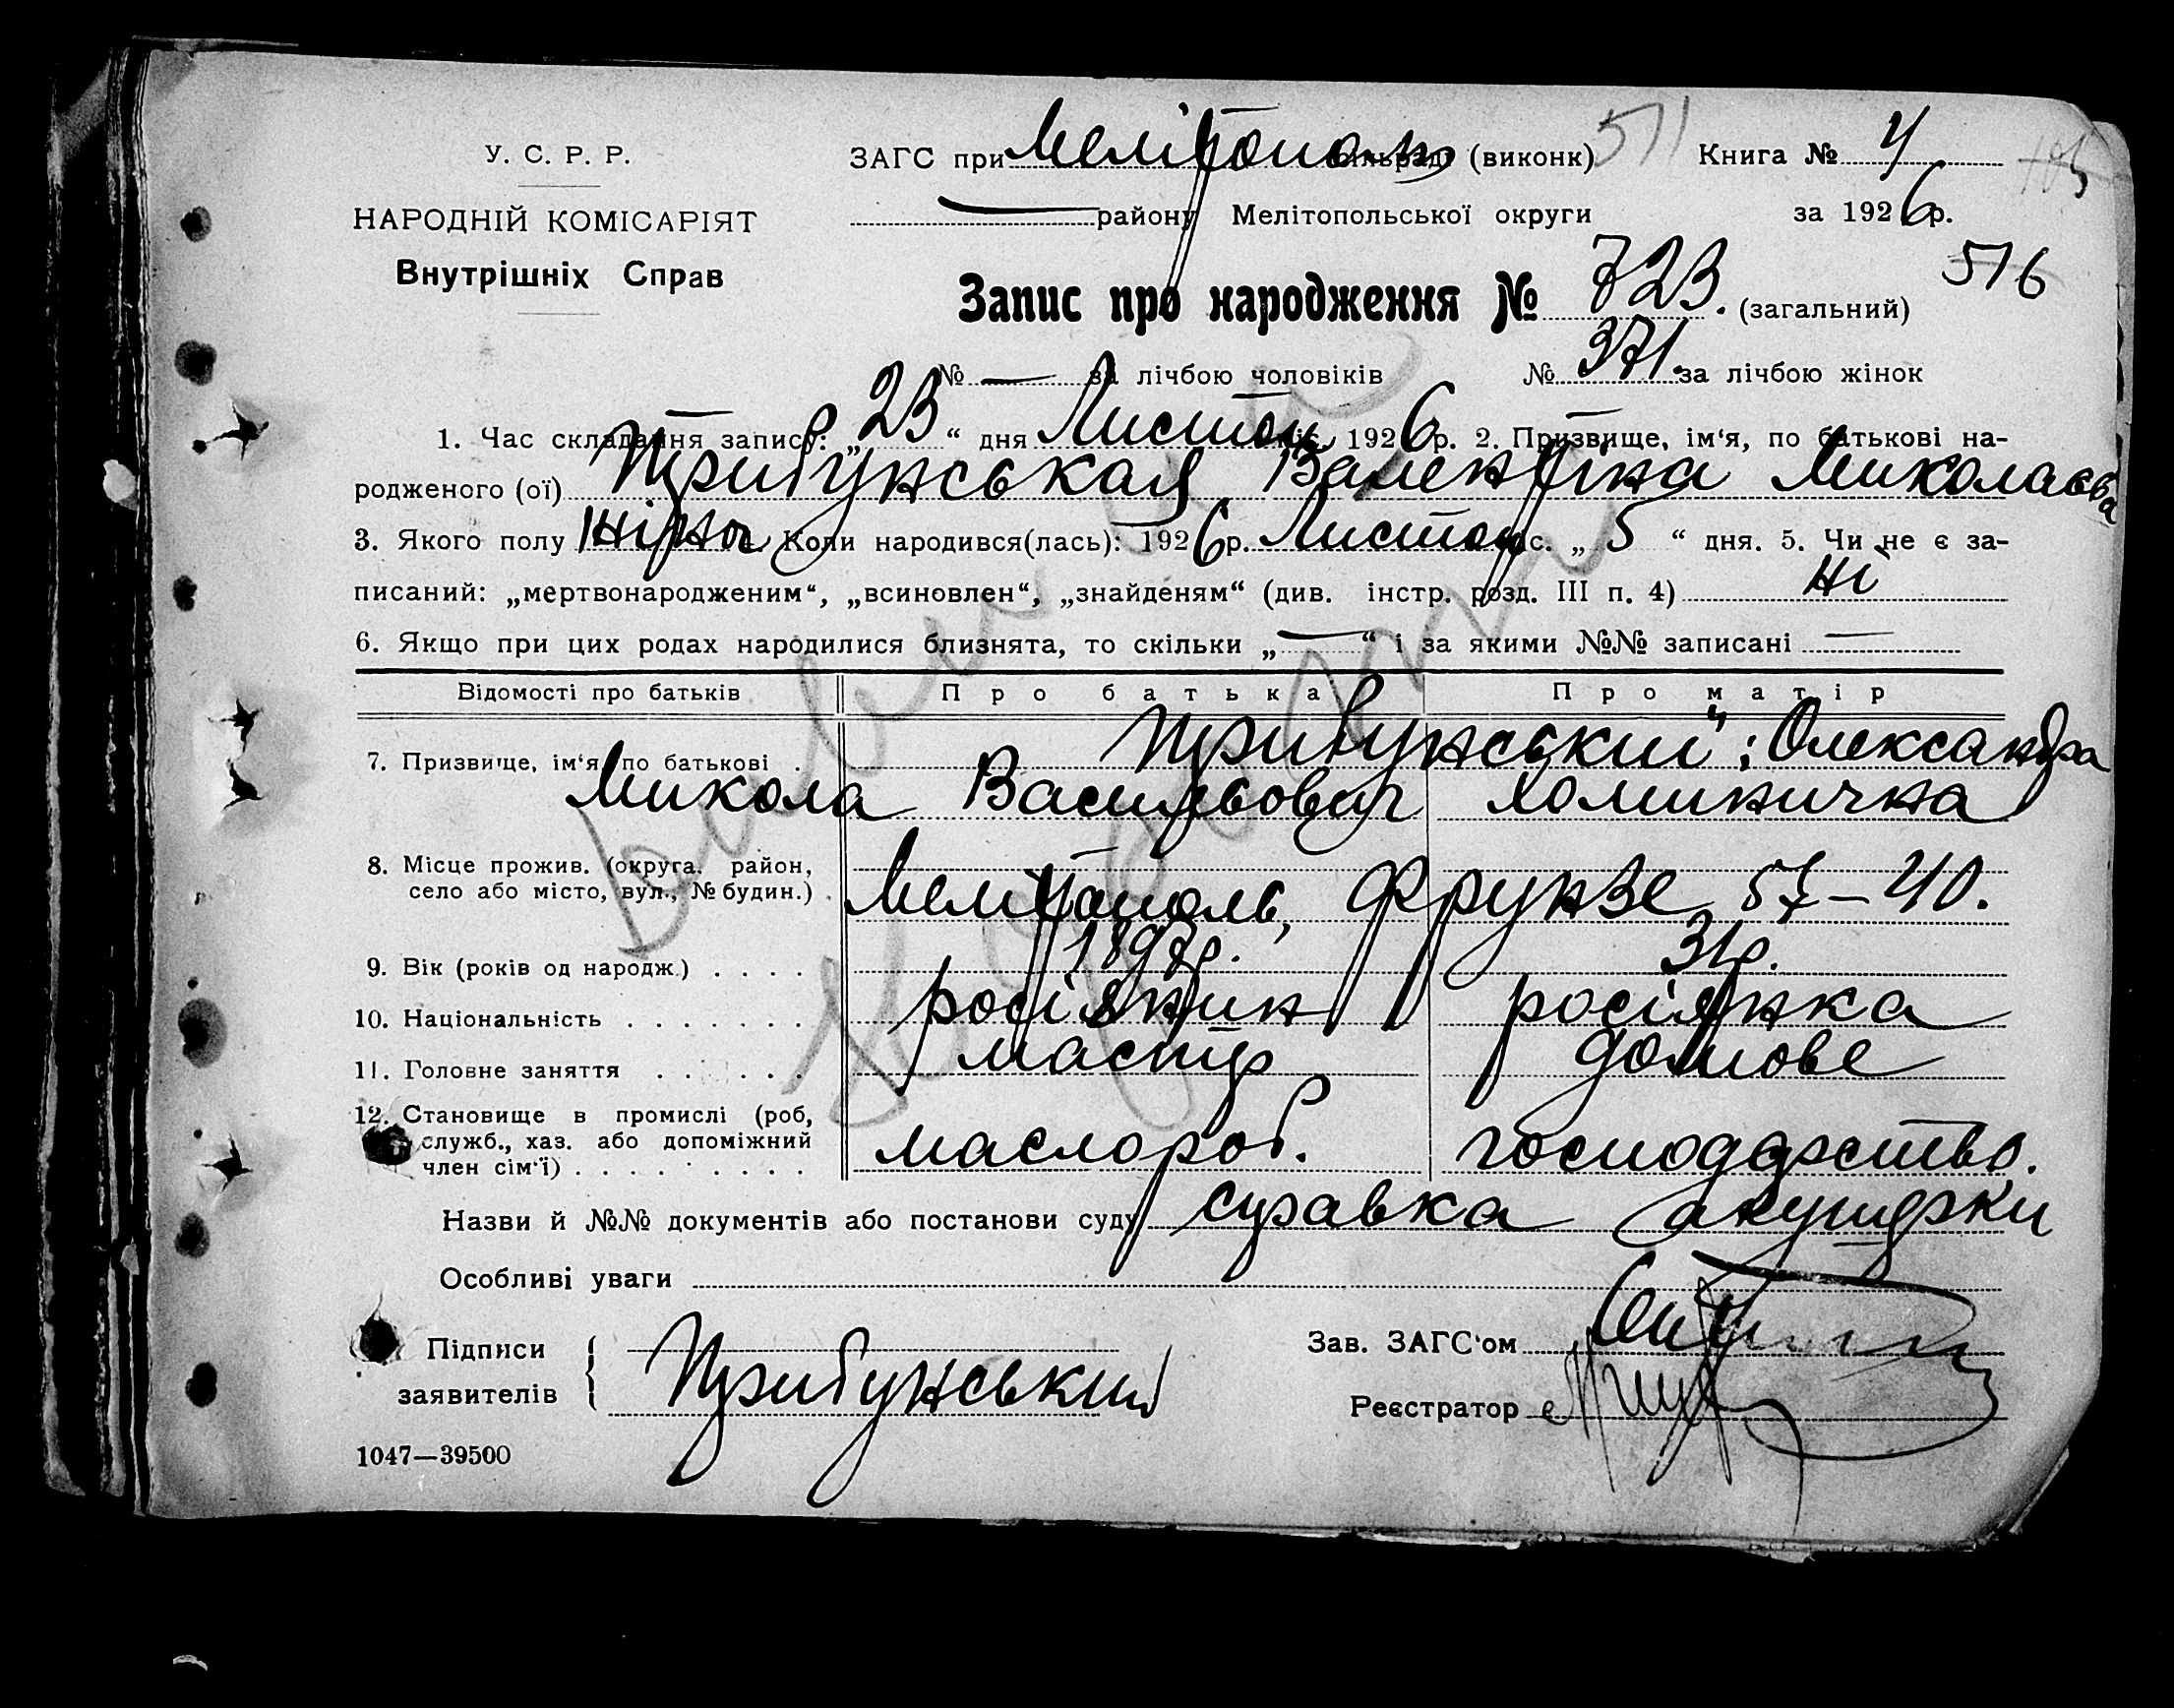 У. С. Р. Р.
НАРОДНІЙ КОМІСАРІЯТ
Внутрішніх Справ
ЗАГС при Мелітопол (виконк) 511 Книга № 4
— району Мелітопольської округи за 1926 р.
516
Запис про народження № 723. (загальний)
№ — за лічбою чоловіків № 371. за лічбою жінок
1. Час складання запису: „23“ дня Листоп міс. 1926 р. 2. Призвище, ім‘я, по батькові на-
родженого (ої) Трибунськая Валентіна Миколаєва
3. Якого полу жіноч 4. Коли народився(лась): 1926 р. Листоп міс. „5“ дня. 5. Чи не є за-
писаний: „мертвонародженим“, „всиновлен“, „знайденям“ (див. інстр. розд. III п. 4) ні
6. Якщо при цих родах народилися близнята, то скільки „—“ і за якими №№ записані —
Відомості про батьків Про батька Про матір
7. Призвище, ім‘я, по батькові . Трибунський; Олександра
Микола Васильович
8. Місце прожив. (округа, район,
село або місто, вул., № будин.) . Мелітополь, Фрунзе 57—40.
9. Вік (років од народж.) . . . . 1897р. 31р.
10. Національність . . . . . . . росіянин росіянка
11. Головне заняття . . . . . . мастер домове
12. Становище в промислі (роб,
служб., хаз. або допоміжний
член сім‘ї) . . . . . . . . . маслороб. господарство.
Назви й №№ документів або постанови суду справка акушерки
Особливі уваги
Підписи
заявителів { Трибунський
Зав. ЗАГС‘ом
Реєстратор
1047—39500